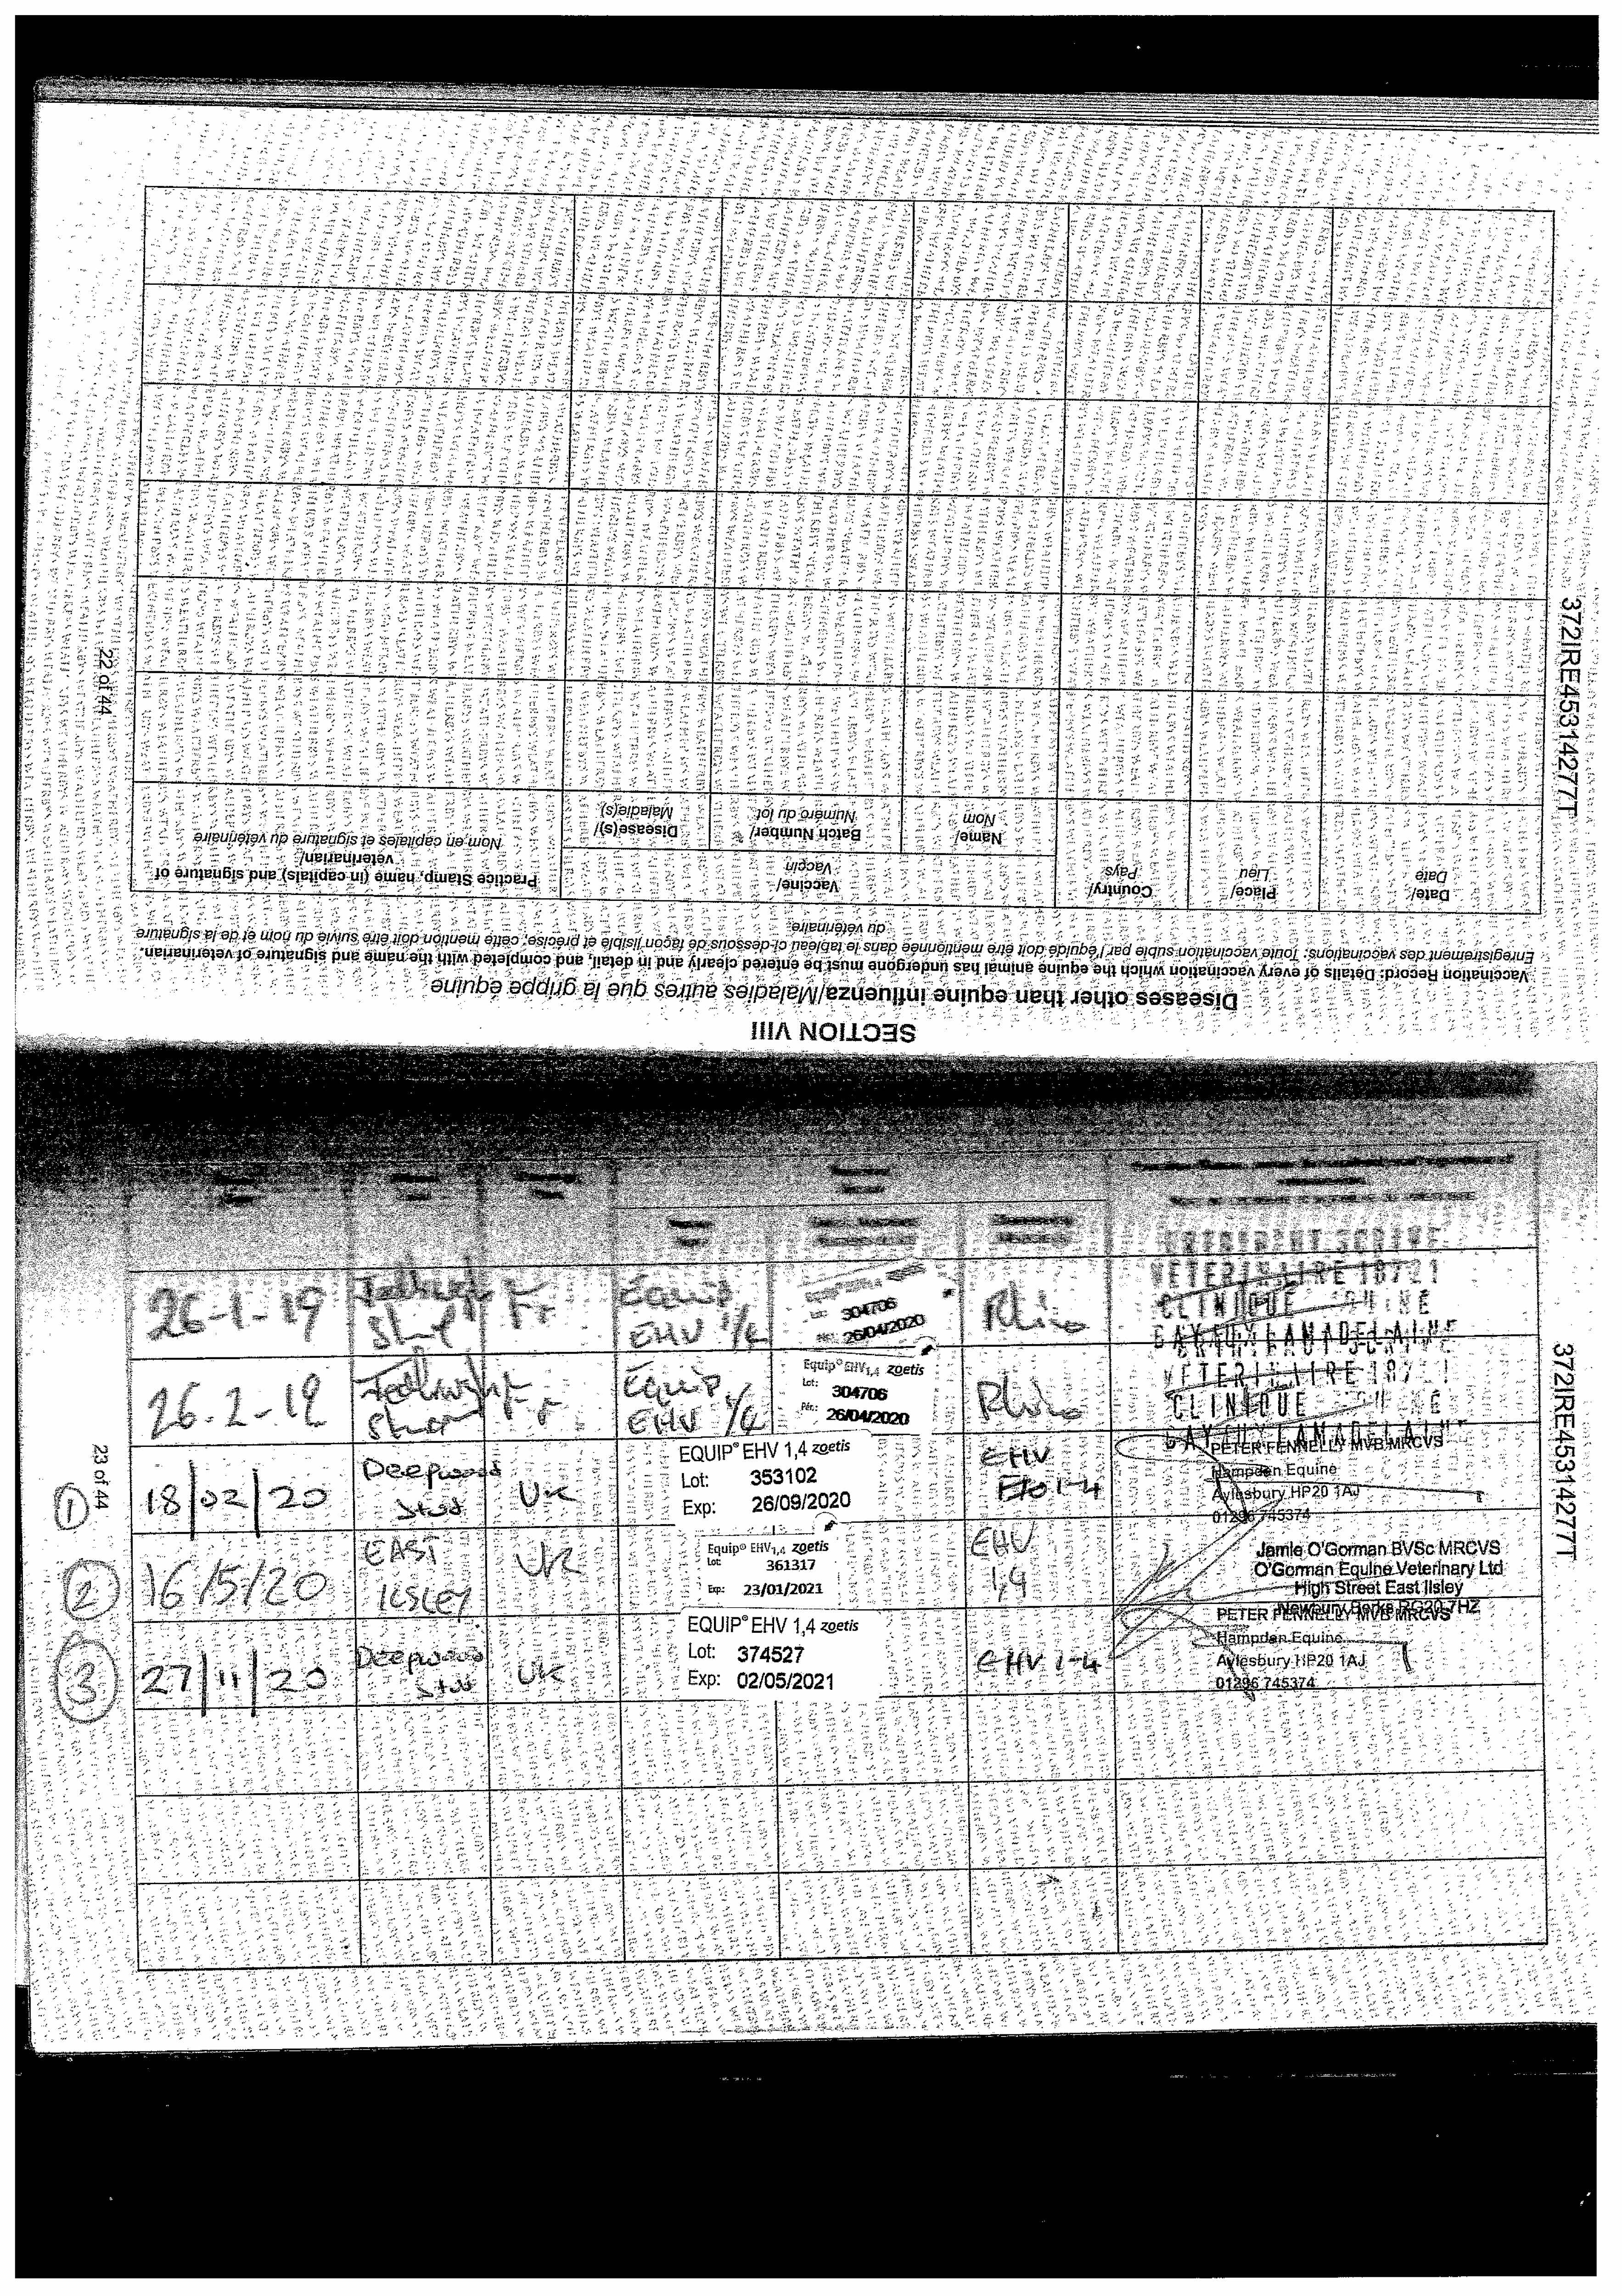 SECTION VIII
Diseases other than equine influenza/Maladies autres que la grippe équine
Vaccination Record: Details of every vaccination which the equine animal has undergone must be entered clearly and in detail, and completed with the name and signature of veterinarian.
Enregistrement des vaccinations: Toute vaccination subie par l'équidé doit être mentionnée dans le tableau ci-dessous de façon lisible et précise, cette mention doit être suivie du nom et de la signature
du vétérinaire.
Date/
Date
Place/
Lieu
Country/
Pays
Vaccine/
Vaccin
Name/
Nom
Batch Number/
Numéro du lot
Disease(s)/
Maladie(s)
Practice Stamp, name (in capitals) and signature of
veterinarian/
Nom en capitales et signature du vétérinaire
372IRE45314277T
22 of 44
26-1-19
Fr
Equip
EHV 1/4
304706
26/04/2020
Rhino
VETERINAIRE 18721
CLINIQUE
26-2-19
Fr
Equip
EHV 1/4
Equip® EHV1,4 zoetis
Lot:
304706
Pér.:
26/04/2020
Rhino
VETERINAIRE 18721
CLINIQUE
1
18/02/20
Deepwood
Stud
UK
EQUIP® EHV 1,4 zoetis
Lot: 353102
Exp: 26/09/2020
EHV
1-4
PETER FENNELLY MVB MRCVS
Hampden Equine
Aylesbury HP20 1AJ
01296 745374
2
16/5/20
EAST
ILSLEY
UK
Equip® EHV1,4 zoetis
Lot:
361317
Exp: 23/01/2021
EHV
1,4
Jamie O'Gorman BVSc MRCVS
O'Gorman Equine Veterinary Ltd
High Street East Ilsley
Newbury Berks RG20 7HZ
3
27/11/20
Deepwood
Stud
UK
EQUIP® EHV 1,4 zoetis
Lot: 374527
Exp: 02/05/2021
EHV 1-4
PETER FENNELLY MVB MRCVS
Hampden Equine
Aylesbury HP20 1AJ
01296 745374
23 of 44
372IRE45314277T